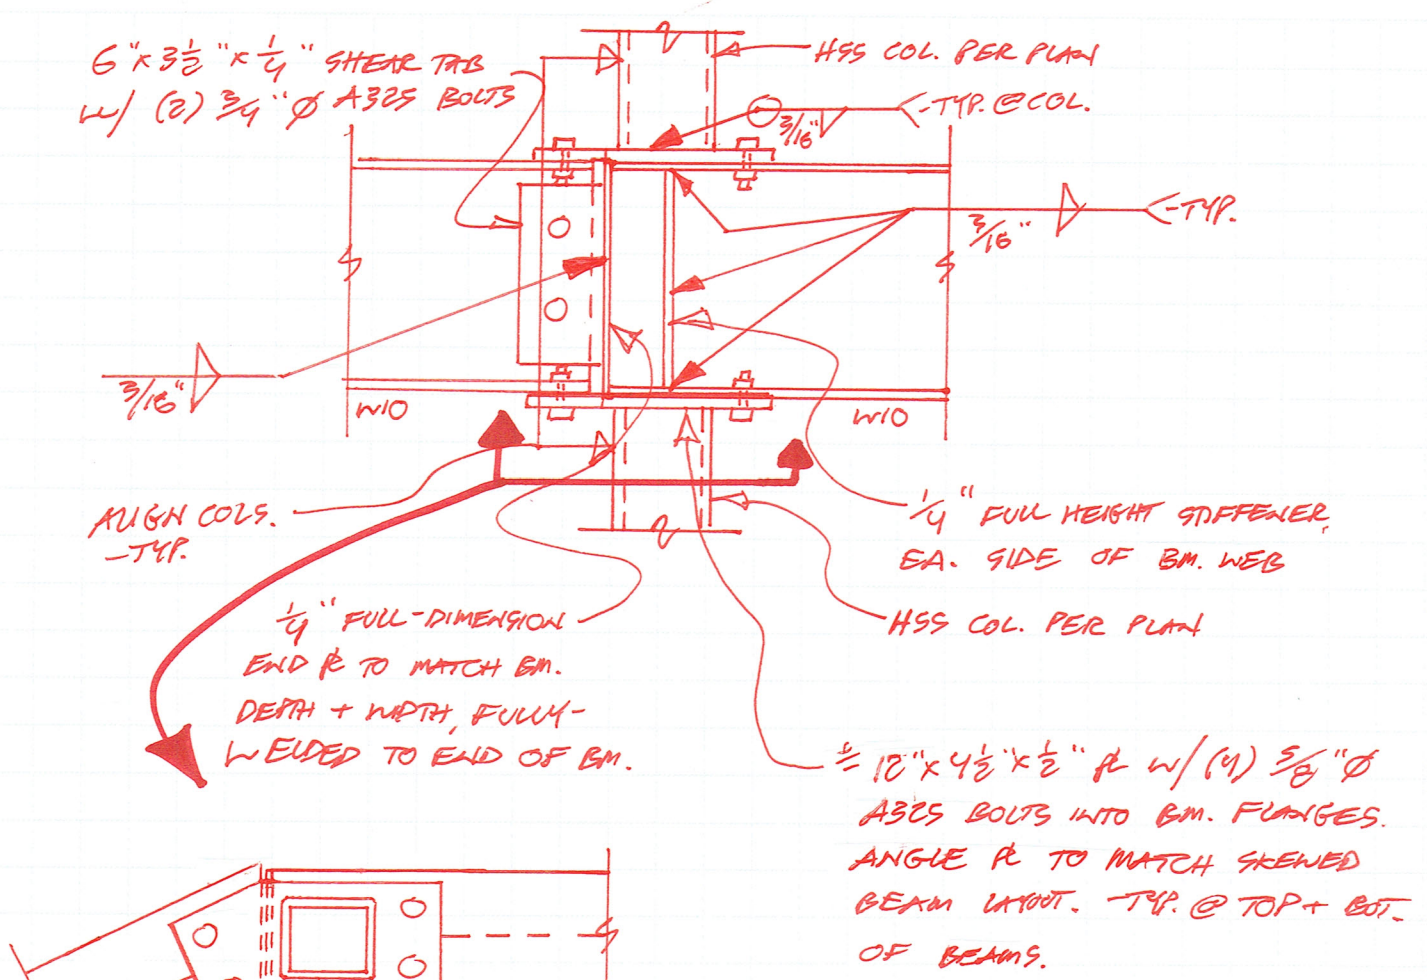 6"x 3 1/2" x 1/4" SHEAR TAB
W/ (2) 3/4" Ø A325 BOLTS
HSS COL. PER PLAN
3/16
-TYP. @ COL.
3/16"
-TYP.
3/16"
W10
W10
ALIGN COLS.
-TYP.
1/4" FULL HEIGHT STIFFENER
EA. SIDE OF BM. WEB
1/4" FULL-DIMENSION
END ℄ TO MATCH BM.
DEPTH + WIDTH, FULLY-
WELDED TO END OF BM.
HSS COL. PER PLAN
± 12"x 4 1/2"x 1/2" ℄ W/ (4) 5/8"Ø
A325 BOLTS INTO BM. FLANGES.
ANGLE ℄ TO MATCH SKEWED
BEAM LAYOUT. -TYP. @ TOP + BOT.
OF BEAMS.